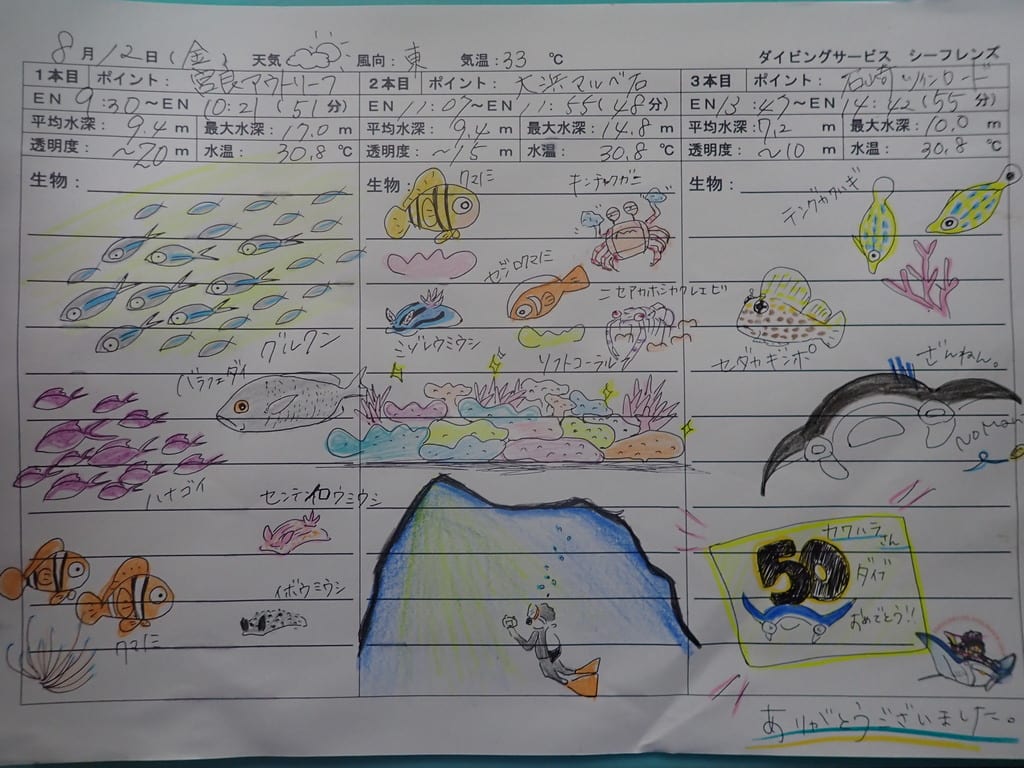 8月12日(金) 天気 風向:東 気温:33℃ ダイビングサービス シーフレンズ
1本目 ポイント:宮良アウトリーフ
EN 9:30～EN 10:21(51分)
平均水深:9.4m 最大水深:17.0m
透明度:～20m 水温:30.8℃
生物:
グルクン
バラフエダイ
ハナゴイ
センテンイロウミウシ
イボウミウシ
クマノミ
2本目 ポイント:大浜マルベ石
EN 11:07～EN 11:55(48分)
平均水深:9.4m 最大水深:14.8m
透明度:～15m 水温:30.8℃
生物:
クマノミ
キンチャクガニ
セジロクマノミ
ニセアカホシカクレエビ
コノレウミウシ
ソフトコーラル
3本目 ポイント:石崎ツインロード
EN 13:47～EN 14:42(55分)
平均水深:7.2m 最大水深:10.0m
透明度:～10m 水温:30.8℃
生物:
テングカワハギ
セダカギンポ
ざんねん。
No Man
カワハラさん
50
ダイブ
おめでとう!!
ありがとうございました。